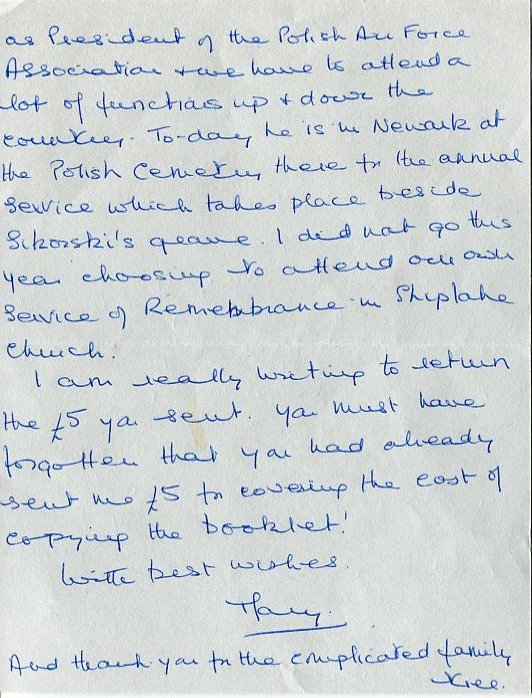 as President of the Polish Air Force
Association & we have to attend a
lot of functions up & down the
country. To-day he is in Newark at
the Polish Cemetery there for the annual
service which takes place beside
Sikorski's grave. I did not go this
year choosing to attend our own
Service of Remembrance in Shiplake
Church.
I am really writing to return
the £5 you sent. You must have
forgotten that you had already
sent me £5 for covering the cost of
copying the booklet!
With best wishes.
Mary.
And thank you for the complicated family
tree.